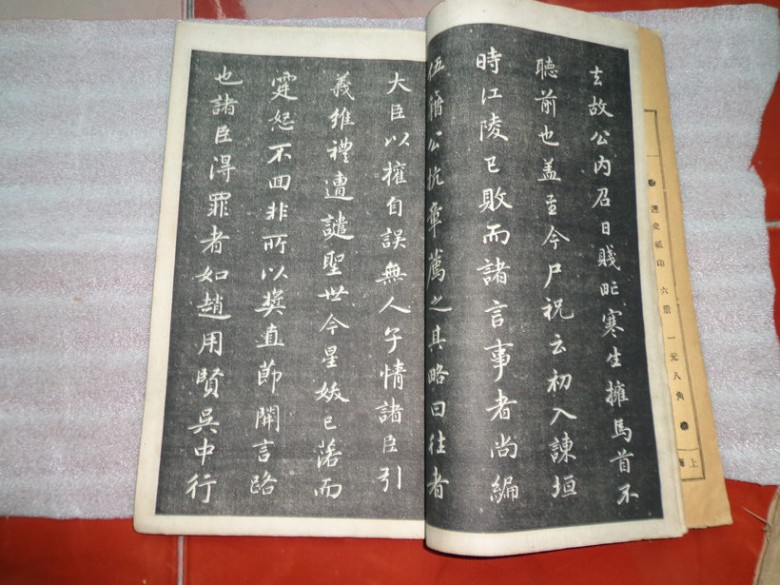 去故公内召日賤甿寒生擁馬首不
聽前也盖至今尸祝云初入諫垣
時江陵已敗而諸言事者尚編
伍籍公抗章薦之其略曰往者
大臣以擁自誤無人子情諸臣引
義維禮遭譴聖世今星妖已落而
霆怒不回非所以奬直節開言路
也諸臣得罪者如趙用賢吳中行
六册 一元八角
上